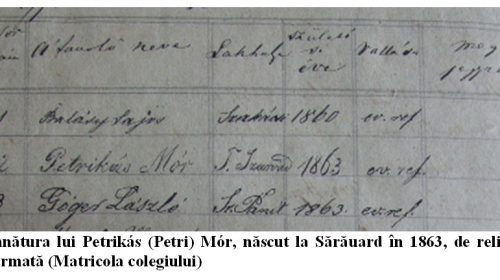 A tanuló neve Lakhelye Születési éve Vallása meg
Balásy Lajos 1860 ev. ref.
2 Petrikás Mór F. Szarvad 1863 ev. ref.
3 Góger László 1863 ev. ref.
nătura lui Petrikás (Petri) Mór, născut la Sărăuard în 1863, de reli
rmată (Matricola colegiului)